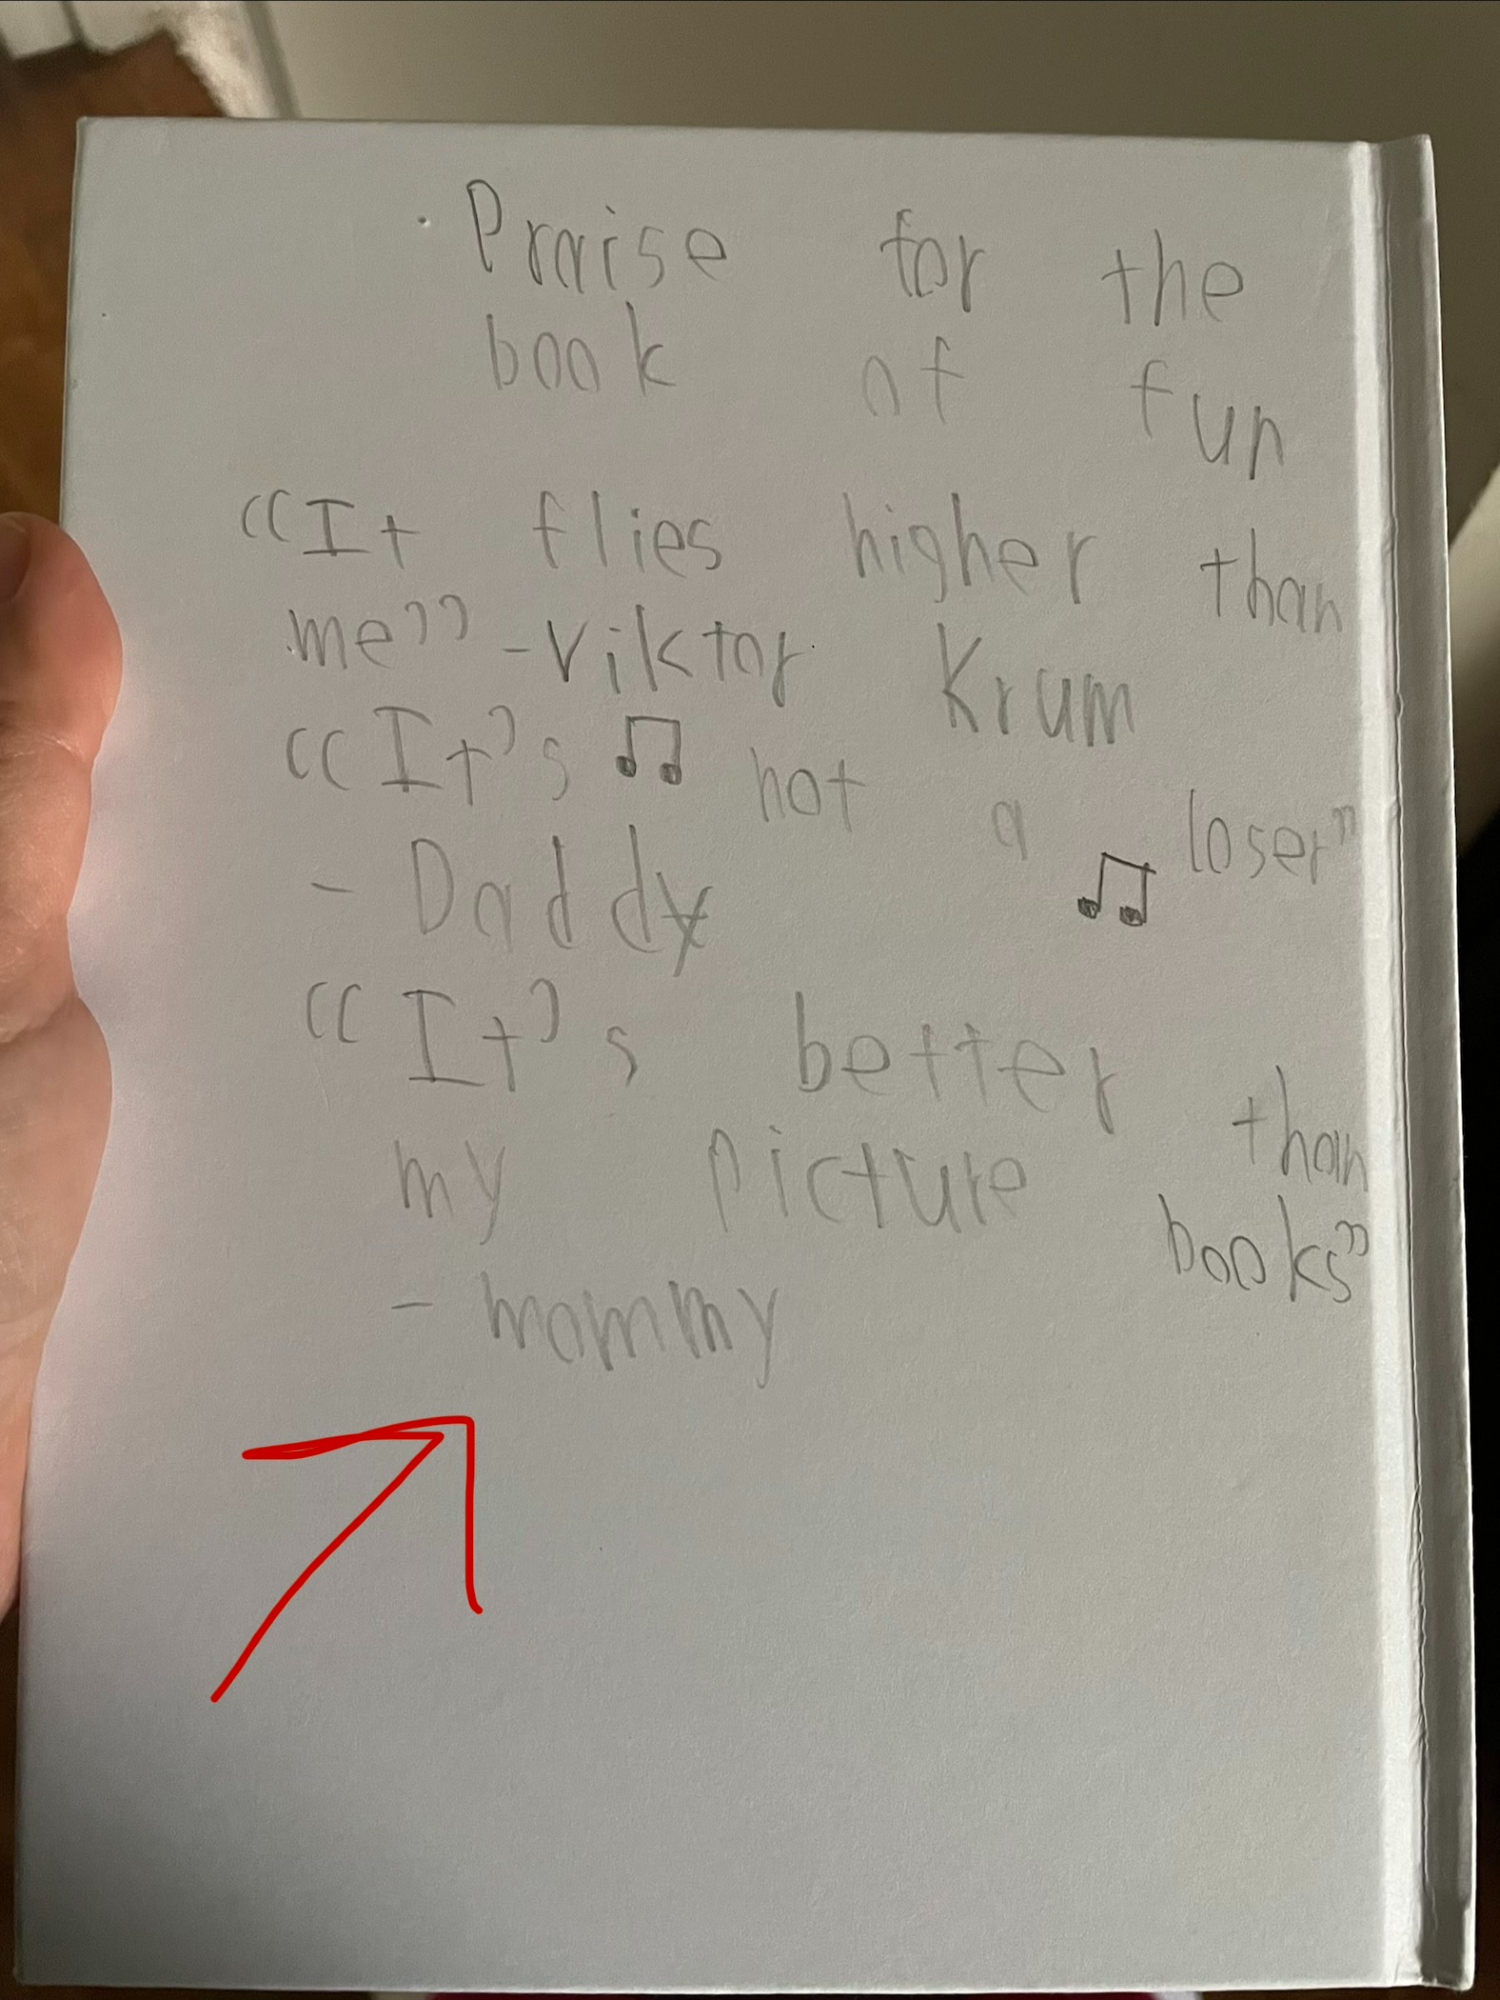 Praise for the
book of fun
"It flies higher than
me" - Viktor Krum
"It's ♫ not a ♫ loser"
- Daddy
"It's better than
my picture books"
- mommy